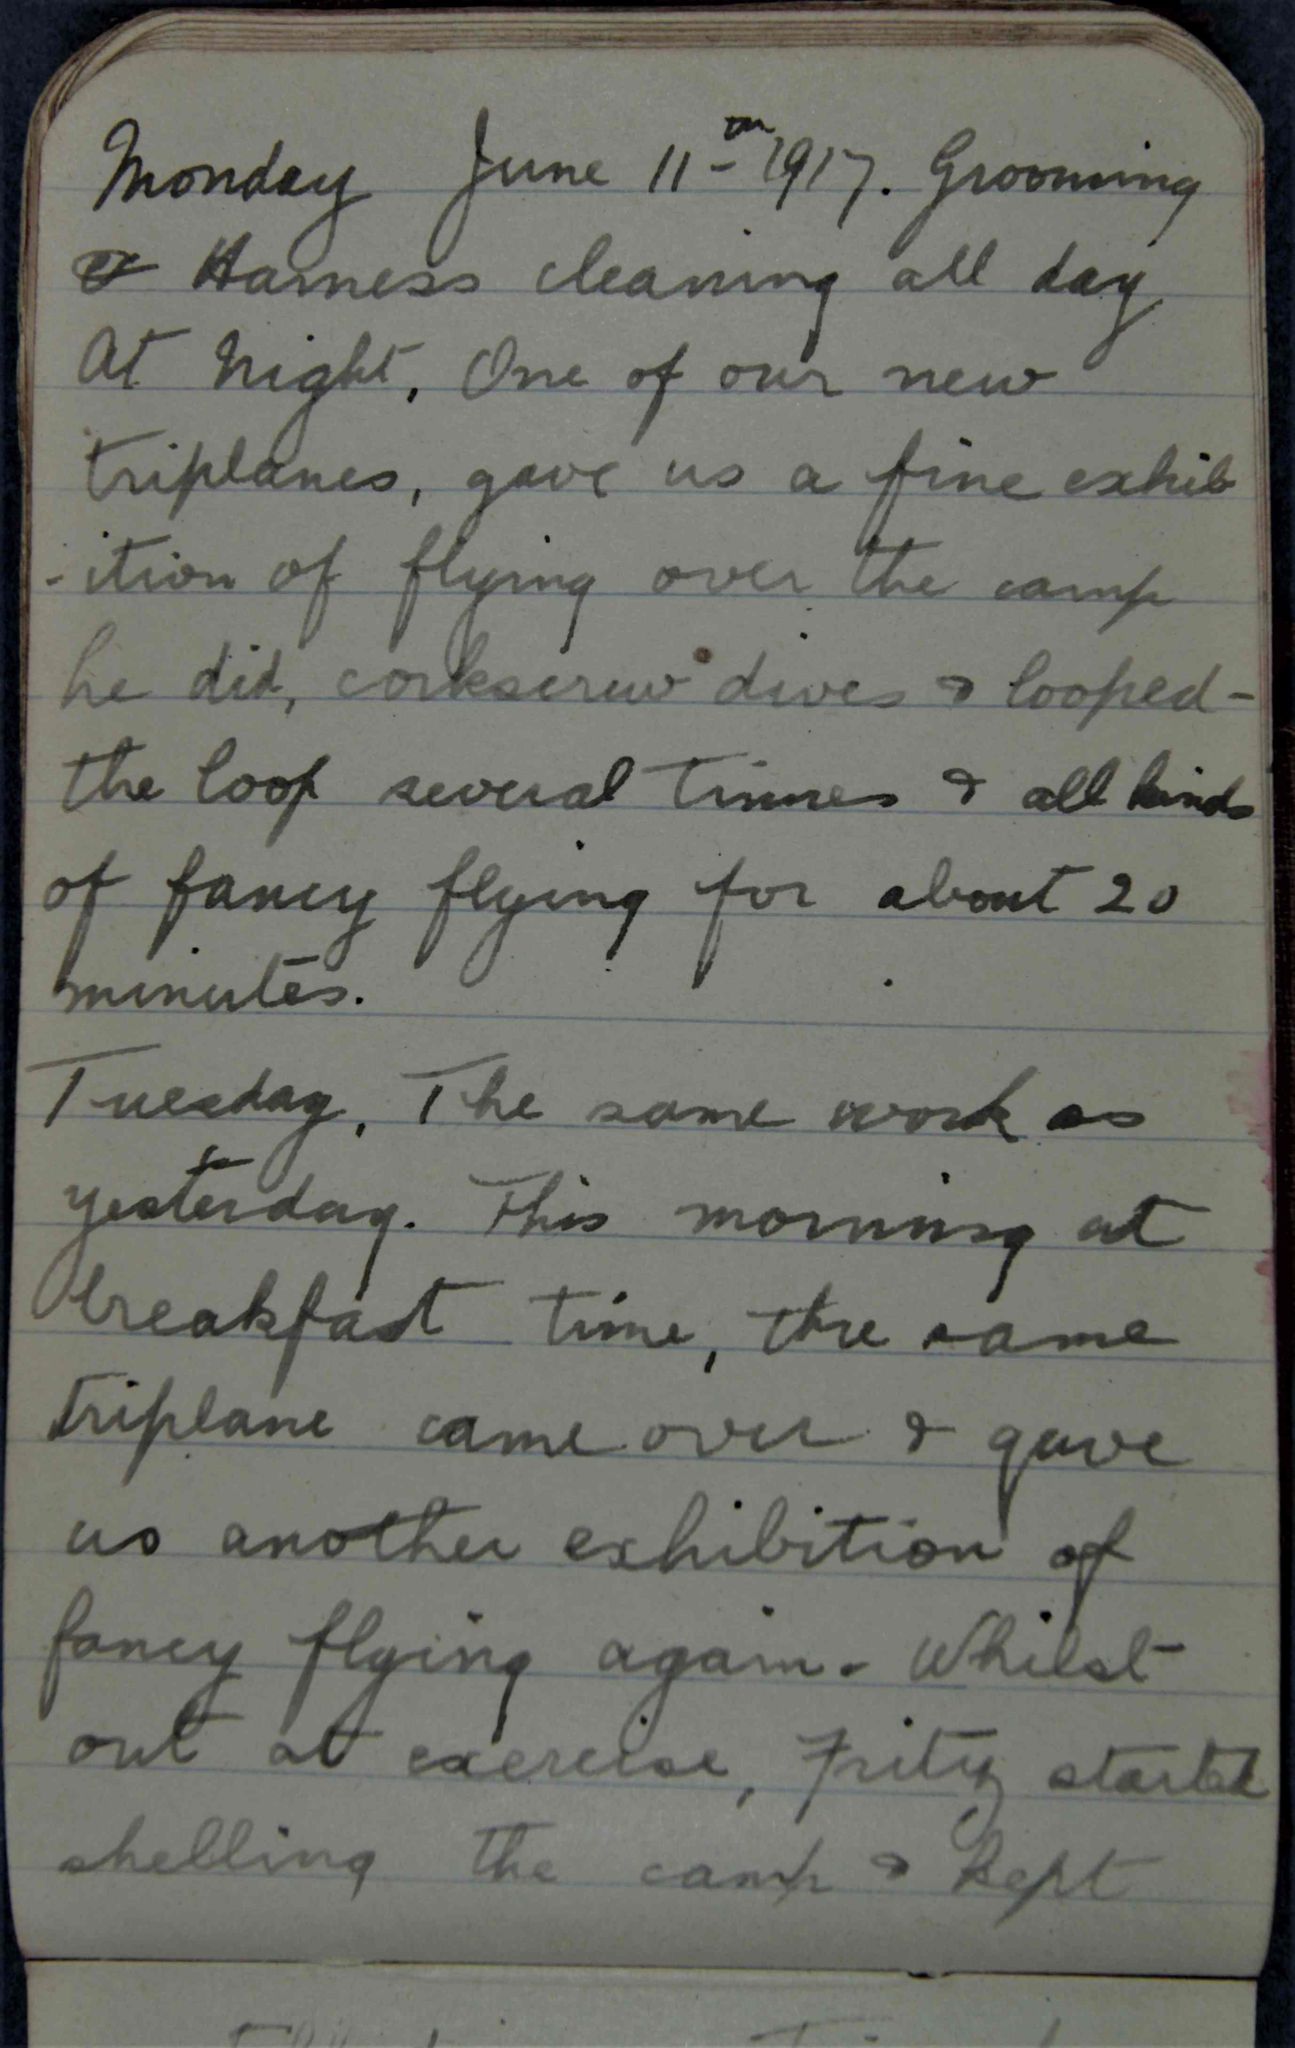 Monday June 11th 1917. Grooming
& Harness cleaning all day
At Night, One of our new
triplanes, gave us a fine exhib
-ition of flying over the camp
he did, corkscrew dives & looped-
the loop several times & all kinds
of fancy flying for about 20
minutes.
Tuesday, The same work as
yesterday. This morning at
breakfast time, the same
triplane came over & gave
us another exhibition of
fancy flying again. Whilst
out at exercise, Fritz started
shelling the camp & kept